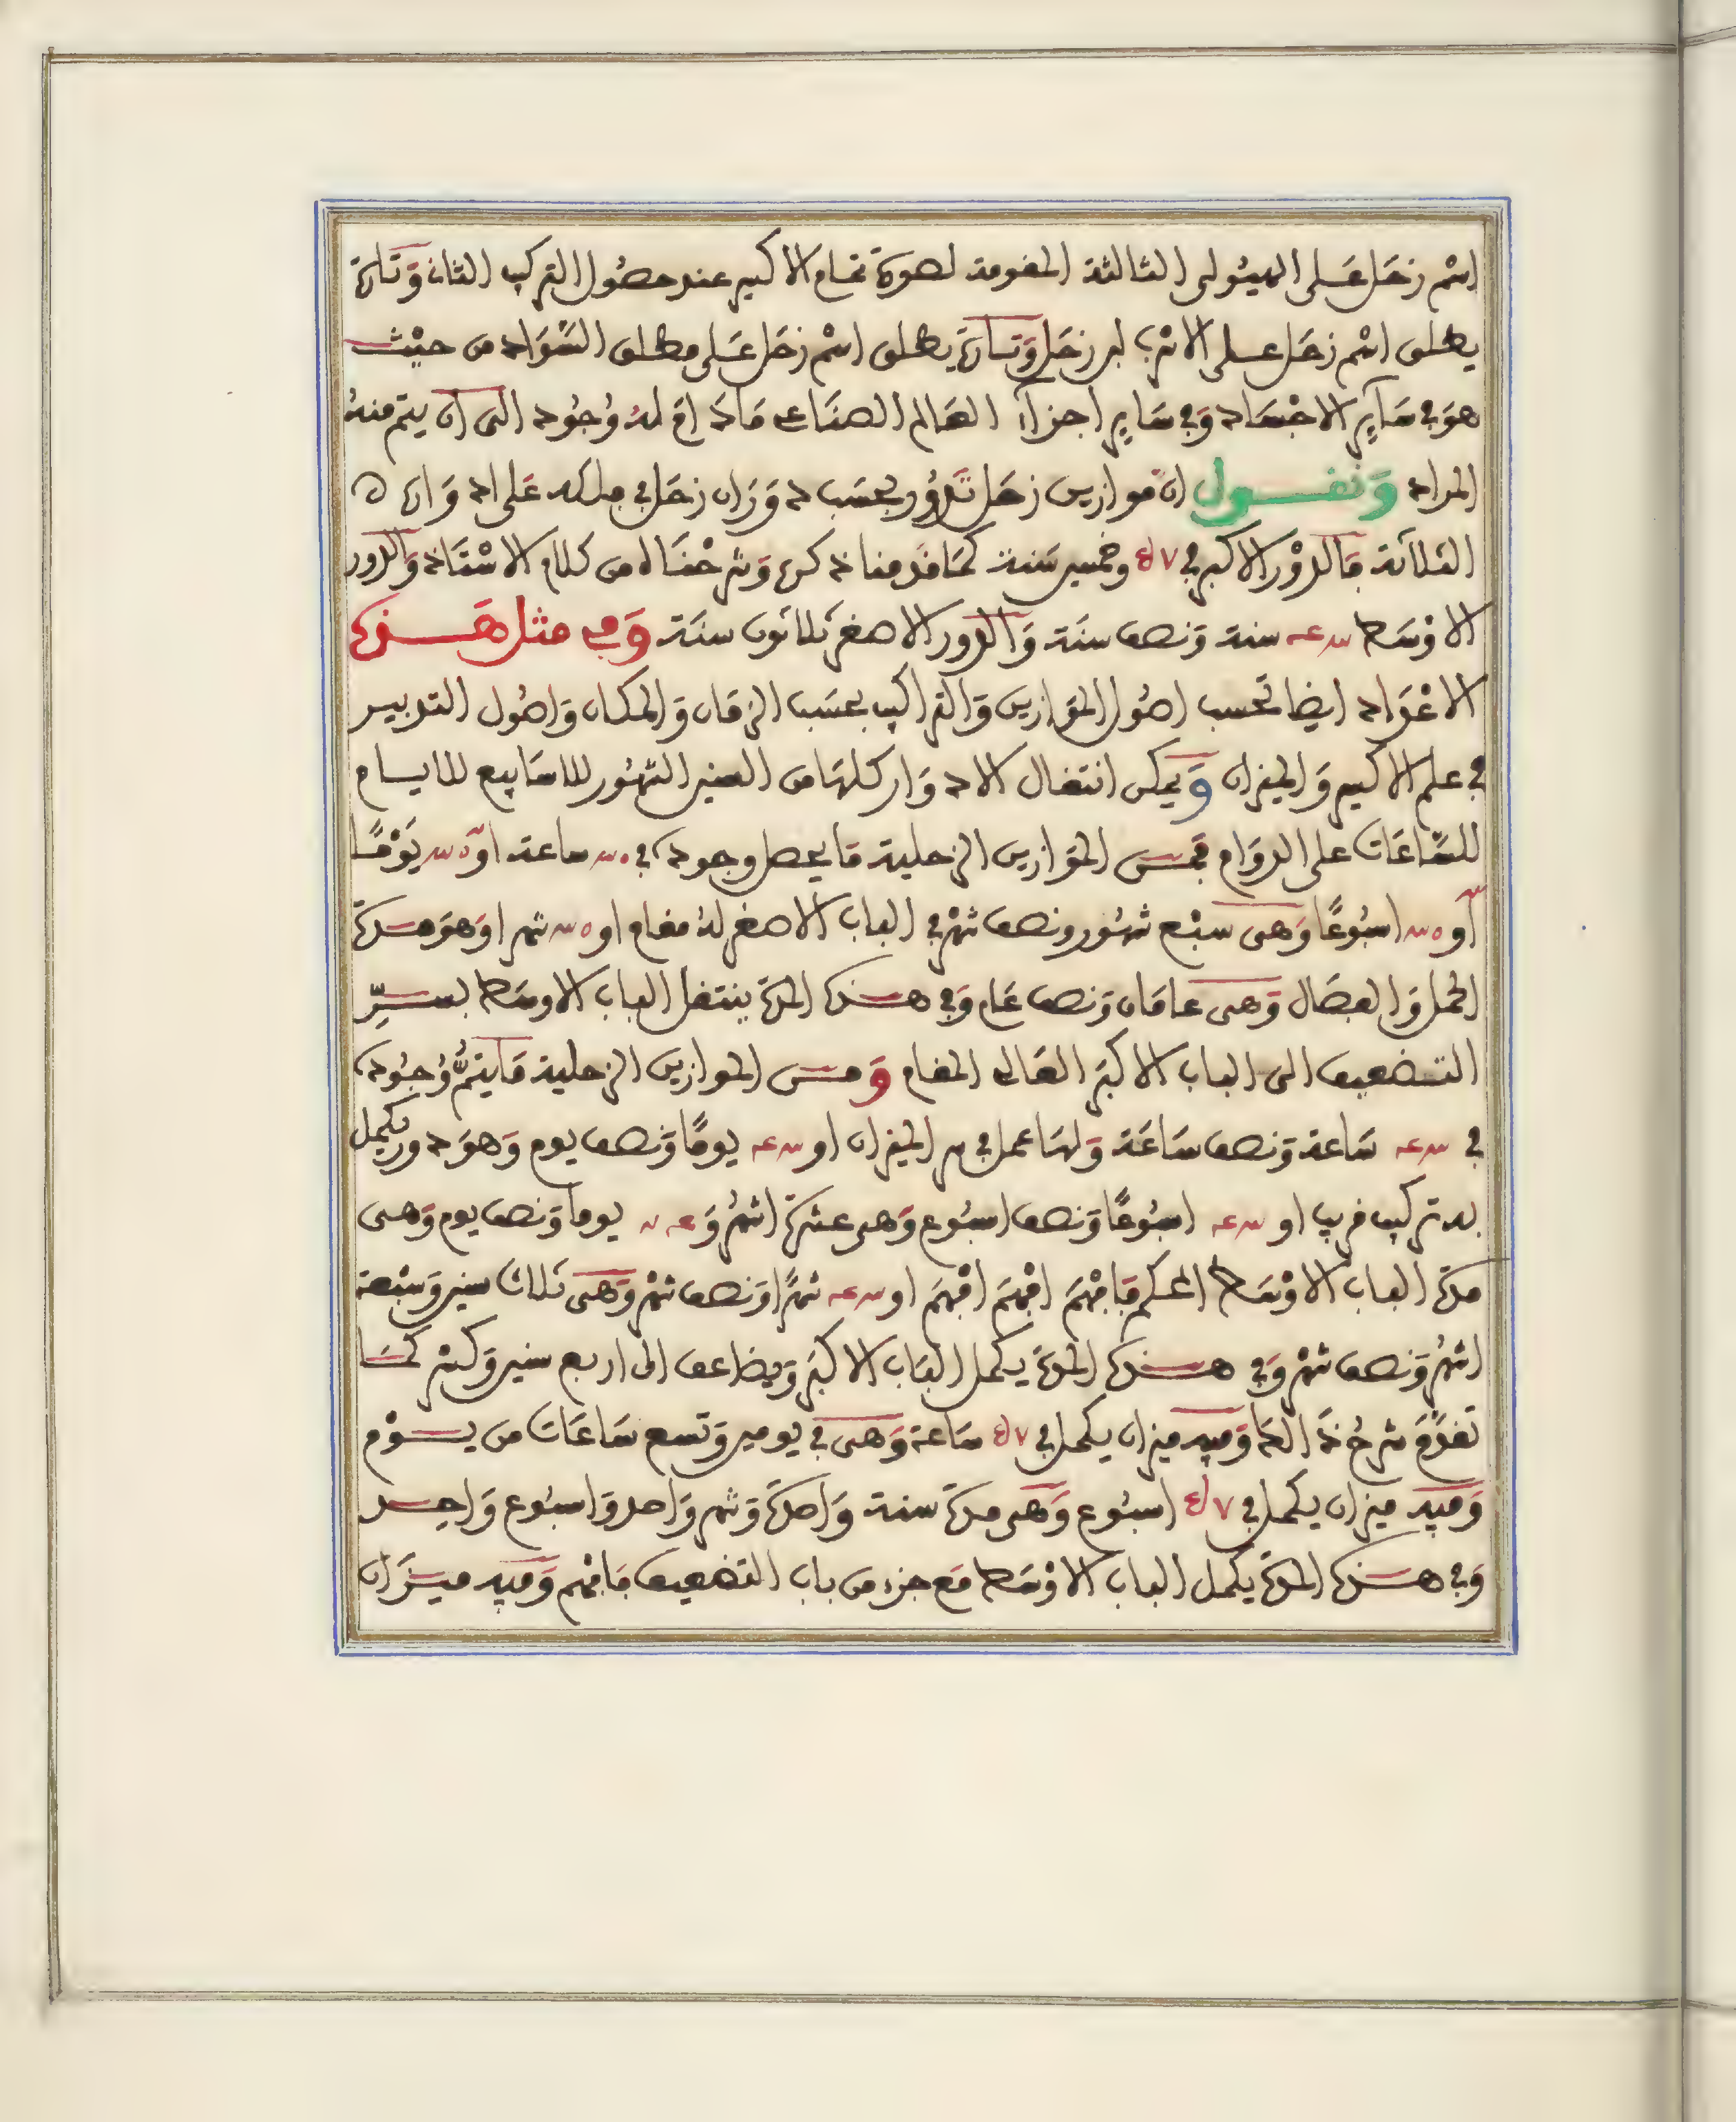 اسْم زحَل عَلى الهيُولى الثالثة المقومة لصورة تمام الاكسير عند حصُول التركيب الثانى وَتارة
يطلق اسْم زحَل على الانرب لهر زحَل وَتارة يطلق اسْم زحَل عَلى مطلق السَّوَاد من حيْث
هوَ فى سَآئِر الاجْسَاد وَفى سَائِر اجزآء العَالم الصنَاعى مَادَامَ لهُ وُجُود الى ان يتم منهُ
المراد وَنقــول ان موازين زحَل تدُور بحسَب دوَرَان زحَل فى فلكه عَلى ادوَاره
الثلاثة فالدوْر الاكبر فى ٧ وخمسين سَنة كمَا قدمنا ذكره وَشرحْنَاه من كلام الاسْتَاذ وَالدور
الاوْسَط سنة وَنصف سنَة وَالدور الاصغر ثلاثون سنَة وَفى مثل هَــذه
الاعْدَاد ايضا تحسب اصُول الموَازين وَالتراكيب بحسَب الزمَان وَالمكان وَاصُول التدبير
فى علم الاكسير وَالميزان وَيمكن انتقال الادوَار كلهَا من السنين للشهُور للاسَابيع للايام
للسَّاعَات على الدوَام فمــن الموَازين الزحلية مَا يحصل وجوده فى ساعة او يَوْمًا
أو اسبُوعًا وَهى سبْع شهُور ونصف شهْر فى الباب الاصغر لهُ مقام او شهرا وَهوَ مــدة
الحمل وَالفصَال وَهى عامَان وَنصف عَام وَفى هــذه المدة ينتقل الباب الاوسَط بســرِّ
التــضعيف الى الباب الاكبَر العَالى المقام وَمــن الموازين الزحلية مَا يتمُّ وُجُوده
فى سَاعة وَنصف سَاعَة وَلهَا عمل فى سر الميزان او يومًا وَنصف يوم وَهوَ دور يكمل
به تركيب قريب او اسبُوعًا وَنصف اسبُوع وَهى عشرة اشهُر وَ يوما وَنصف يوم وَهى
مدة الباب الاوْسَط المحكم فَافهَمْ افهَمْ افهَمْ او شهْرًا وَنصف شهْر وَهى ثلاث سنين وَسَبْعة
اشهُر وَنصف شهْر وَفى هــذه المدة يكمل البَاب الاكبَر وَيضاعف الى اربع سنين وَكسْر كمَــا
تقدَّمَ شرحُ ذَالك وَفيه ميزان يكمل فى ٧ سَاعة وَهى فى يومين وَتسع سَاعَات من يــوْم
وَفيه ميزان يكمل فى ٧ اسبُوع وَهى مدة سنة وَاحدة وَشهر وَاحد وَاسبُوع وَاحــد
وَفى هــذه المدة يكمل الباب الاوْسَط مَع جزء من باب التضعيف فَافهم وَفيه ميــزَان